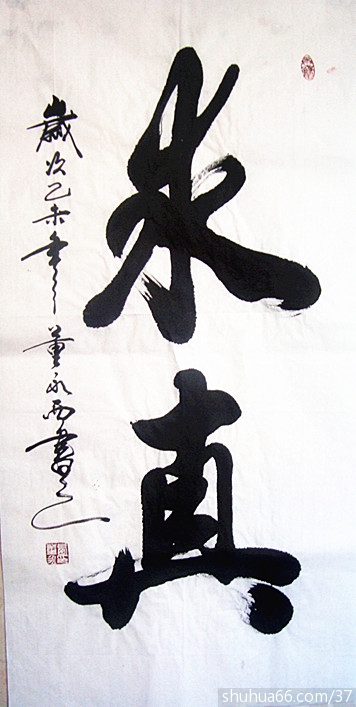 求真
歲次乙未年董永西書
shuhua66.com/37